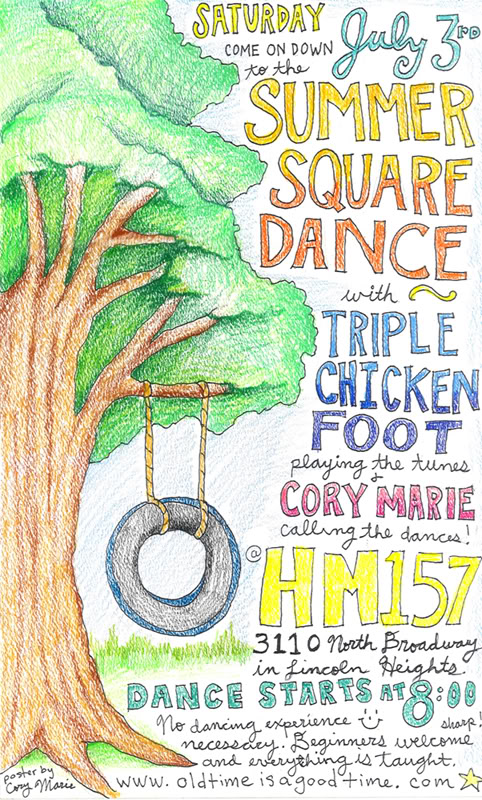 SATURDAY
July 3RD
COME ON DOWN
to the
SUMMER
SQUARE
DANCE
with ~
TRIPLE
CHICKEN
FOOT
playing the tunes
&
CORY MARIE
calling the dances!
@ HM157
3110 North Broadway
in Lincoln Heights.
DANCE STARTS AT 8:00
sharp!
No dancing experience
necessary. Beginners welcome
and everything is taught.
www.oldtimeisagoodtime.com
poster by
Cory Marie